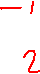 - 1
2